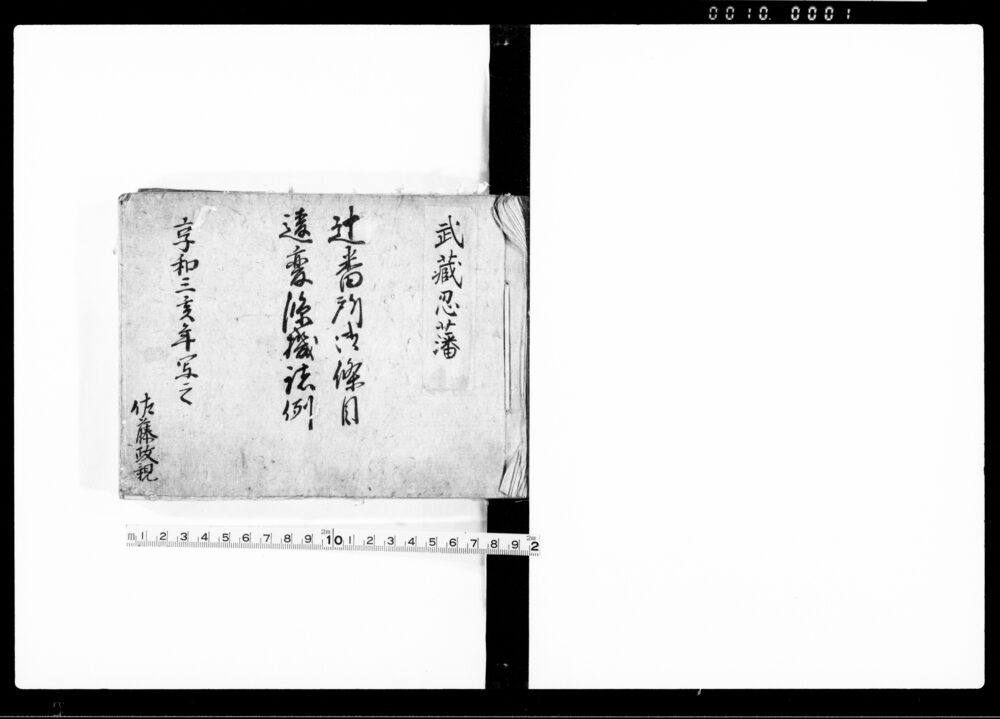 0010. 0001
武藏忍藩
辻番所御條目
遠変際機誌例
享和三亥年写之
佐藤政親
m 1 2 3 4 5 6 7 8 9 10 1 2 3 4 5 6 7 8 9 2